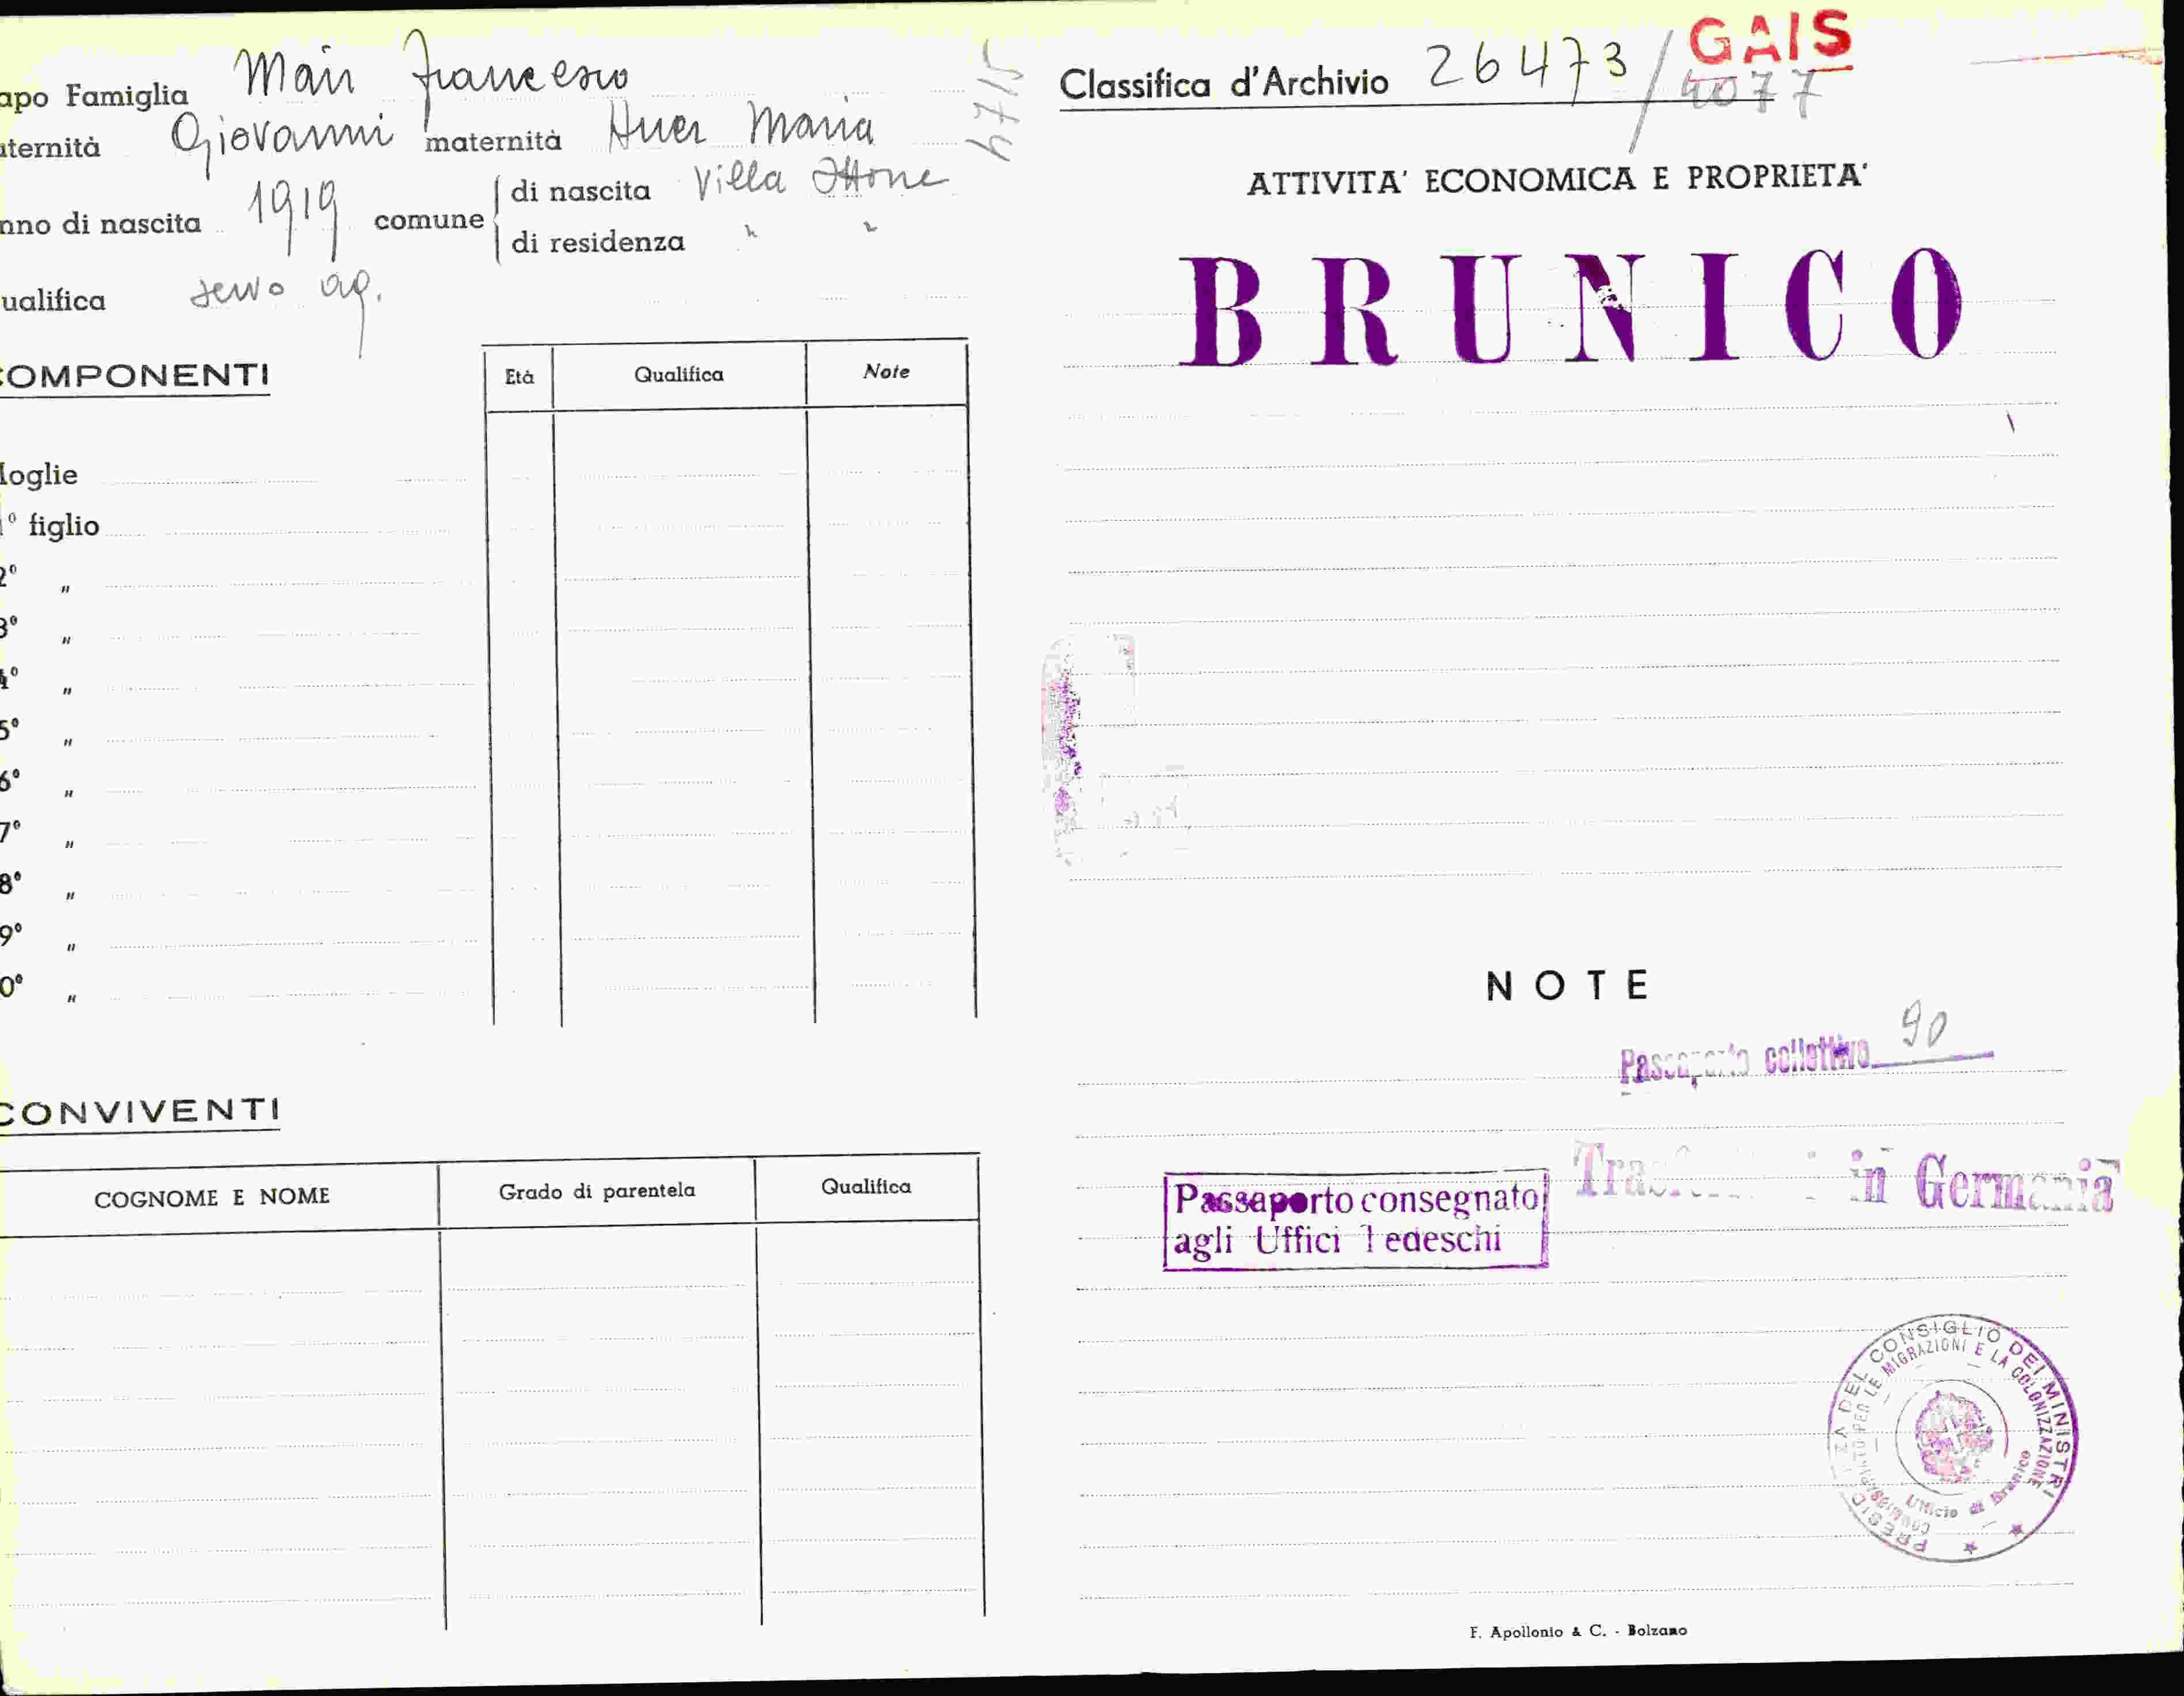 apo Famiglia Mair Francesco
aternità Giovanni maternità Auer Maria
nno di nascita 1919 comune di nascita Villa Ottone
di residenza " "
ualifica servo ag.
4715
COMPONENTI
Età Qualifica Note
Moglie
1° figlio
2° "
3° "
4° "
5° "
6° "
7° "
8° "
9° "
0° "
CONVIVENTI
COGNOME E NOME Grado di parentela Qualifica
GAIS
Classifica d'Archivio 26473/4077
ATTIVITA' ECONOMICA E PROPRIETA'
BRUNICO
NOTE
Passaporto collettivo 90
in Germania
Passaporto consegnato
agli Uffici Tedeschi
PRESIDENZA DEL CONSIGLIO DEI MINISTRI
COMMISSARIATO PER LE MIGRAZIONI E LA COLONIZZAZIONE
Ufficio di Brunico
F. Apollonio & C. - Bolzano